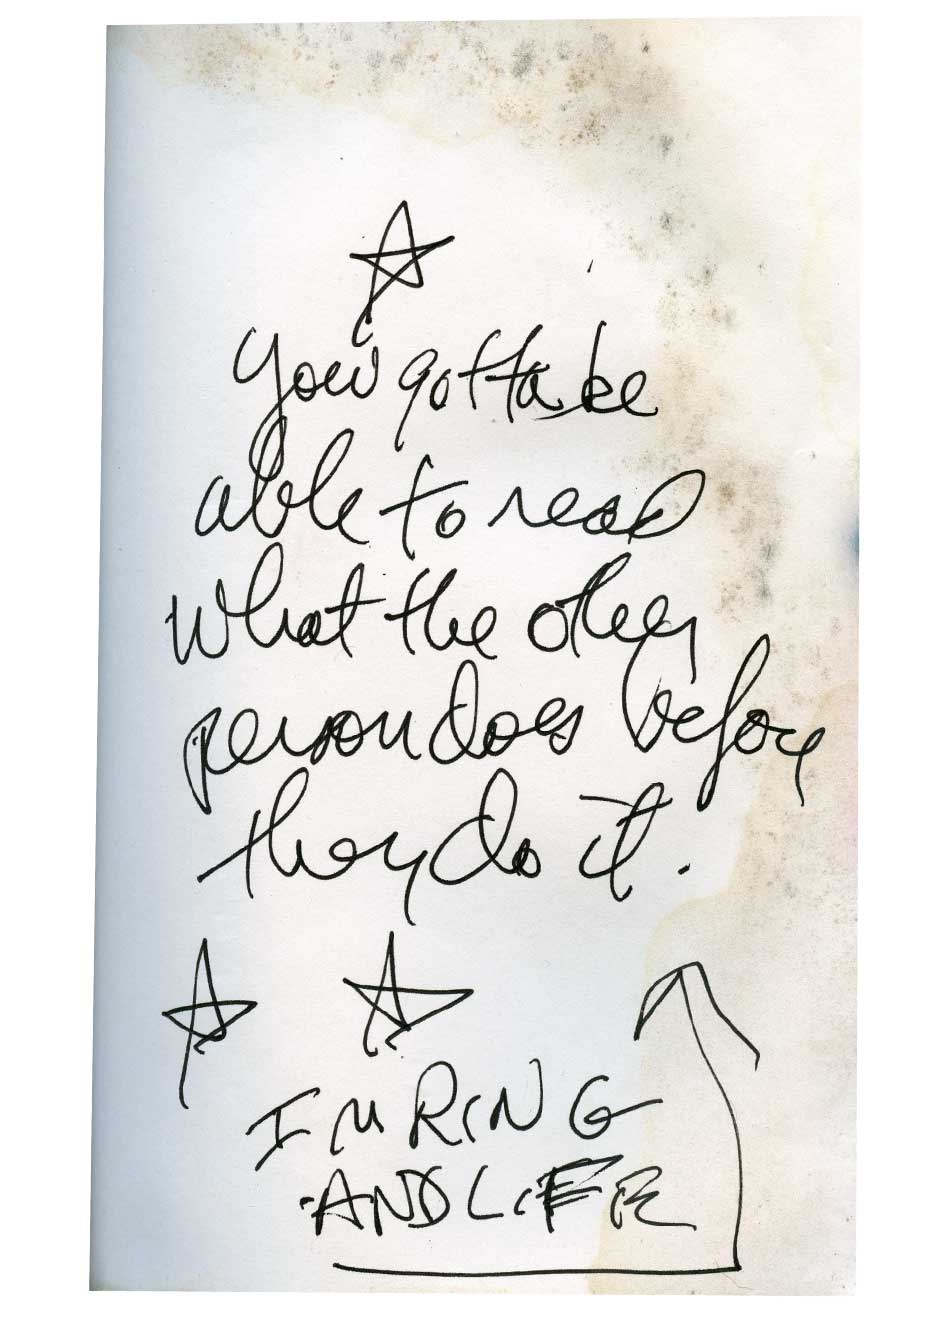 You gotta be
able to read
What the other
person does before
they do it.
IN RING
AND LIFE